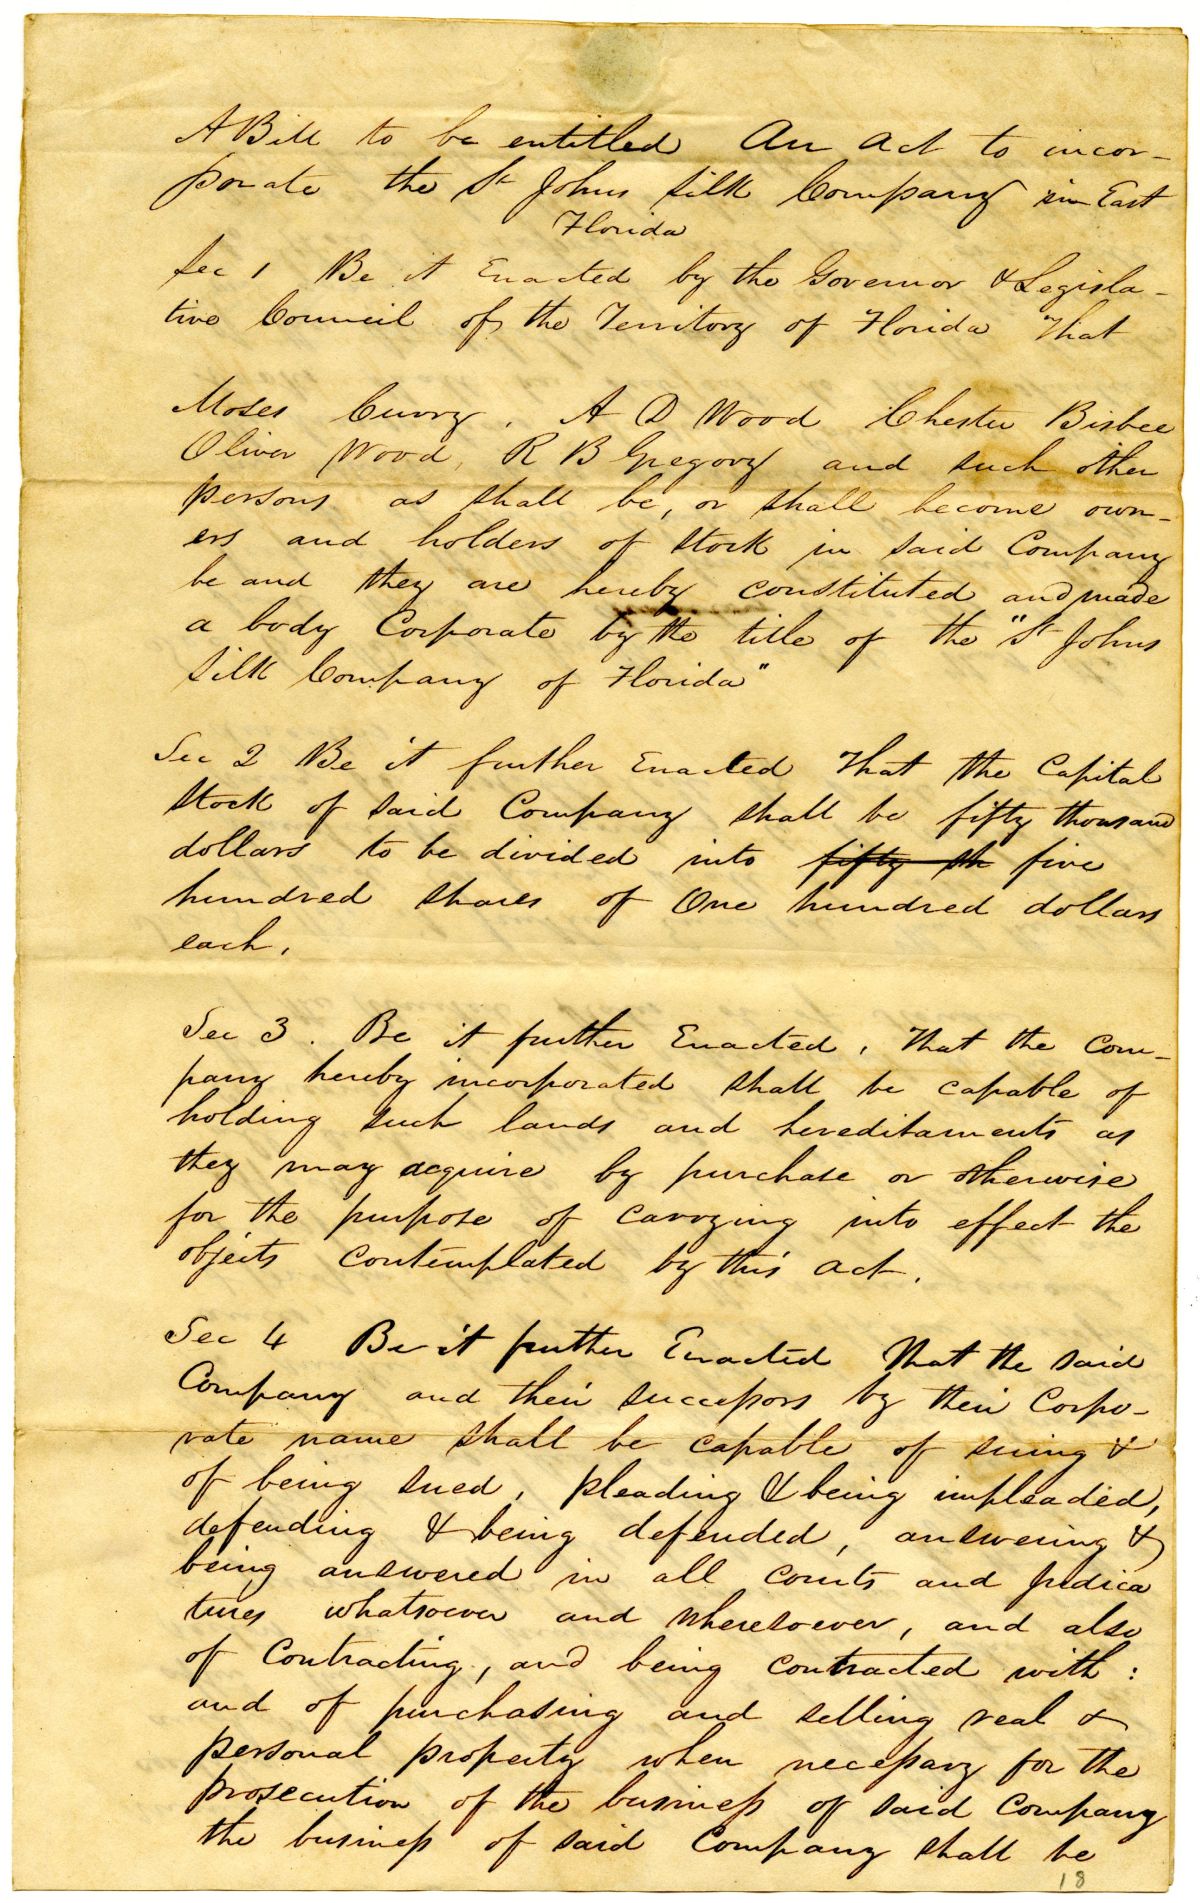 A Bill to be entitled An Act to incor-
porate the St Johns Silk Company in East
Florida
Sec 1 Be it Enacted by the Governor & Legisla-
tive Council of the Territory of Florida That
Moses Curry, A D Wood Chester Bisbee
Oliver Wood, R B Gregory and such other
persons as shall be, or shall become own-
ers and holders of stock in said Company
be and they are hereby constituted and made
a body Corporate by the title of the "St Johns
Silk Company of Florida"
Sec 2 Be it further Enacted That the Capital
Stock of said Company shall be fifty thousand
dollars to be divided into fifty sh five
hundred shares of One hundred dollars
each.
Sec 3. Be it further Enacted, That the Com-
pany hereby incorporated shall be capable of
holding such lands and hereditaments as
they may acquire by purchase or otherwise
for the purpose of carrying into effect the
objects contemplated by this act.
Sec 4 Be it further Enacted That the said
Company and their successors by their Corpo-
rate name shall be capable of suing &
of being sued, pleading & being impleaded,
defending & being defended, answering &
being answered in all courts and judica
tures whatsoever and wheresoever, and also
of Contracting, and being contracted with:
and of purchasing and selling real &
personal property when necessary for the
prosecution of the business of said Company
the business of said Company shall be
18